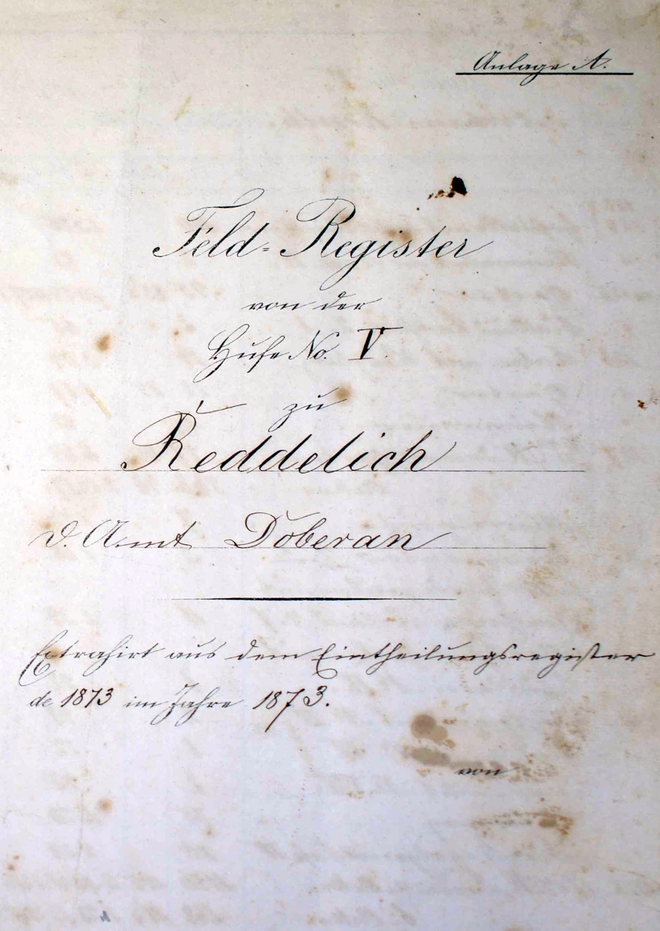 Anlage A.
Feld-Register
von der
Hufe No. V.
zu
Reddelich
D. Amt Doberan
Extrahirt aus dem Eintheilungsregister
de 1873 im Jahre 1873.
von